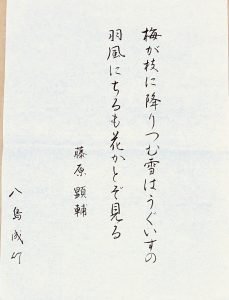 梅が枝に降りつむ雪はうぐいすの
羽風にちるも花かとぞ見る
藤原 顕輔
八島成行